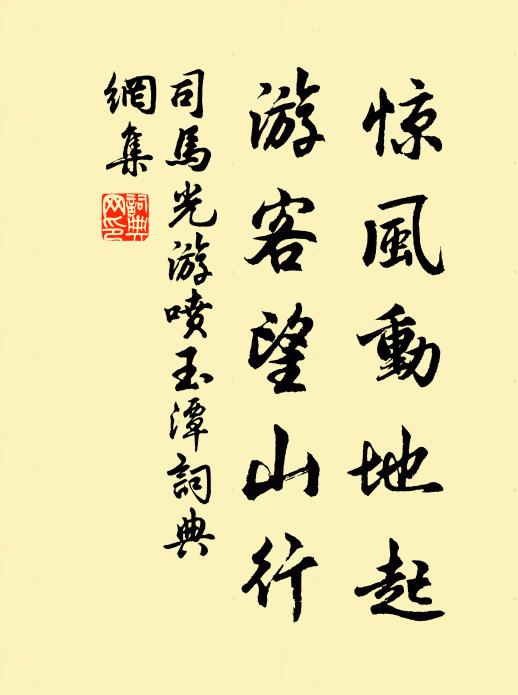 惊風動地起
游客望山行
司馬光游喷玉潭詞典
網集
詞典
网印